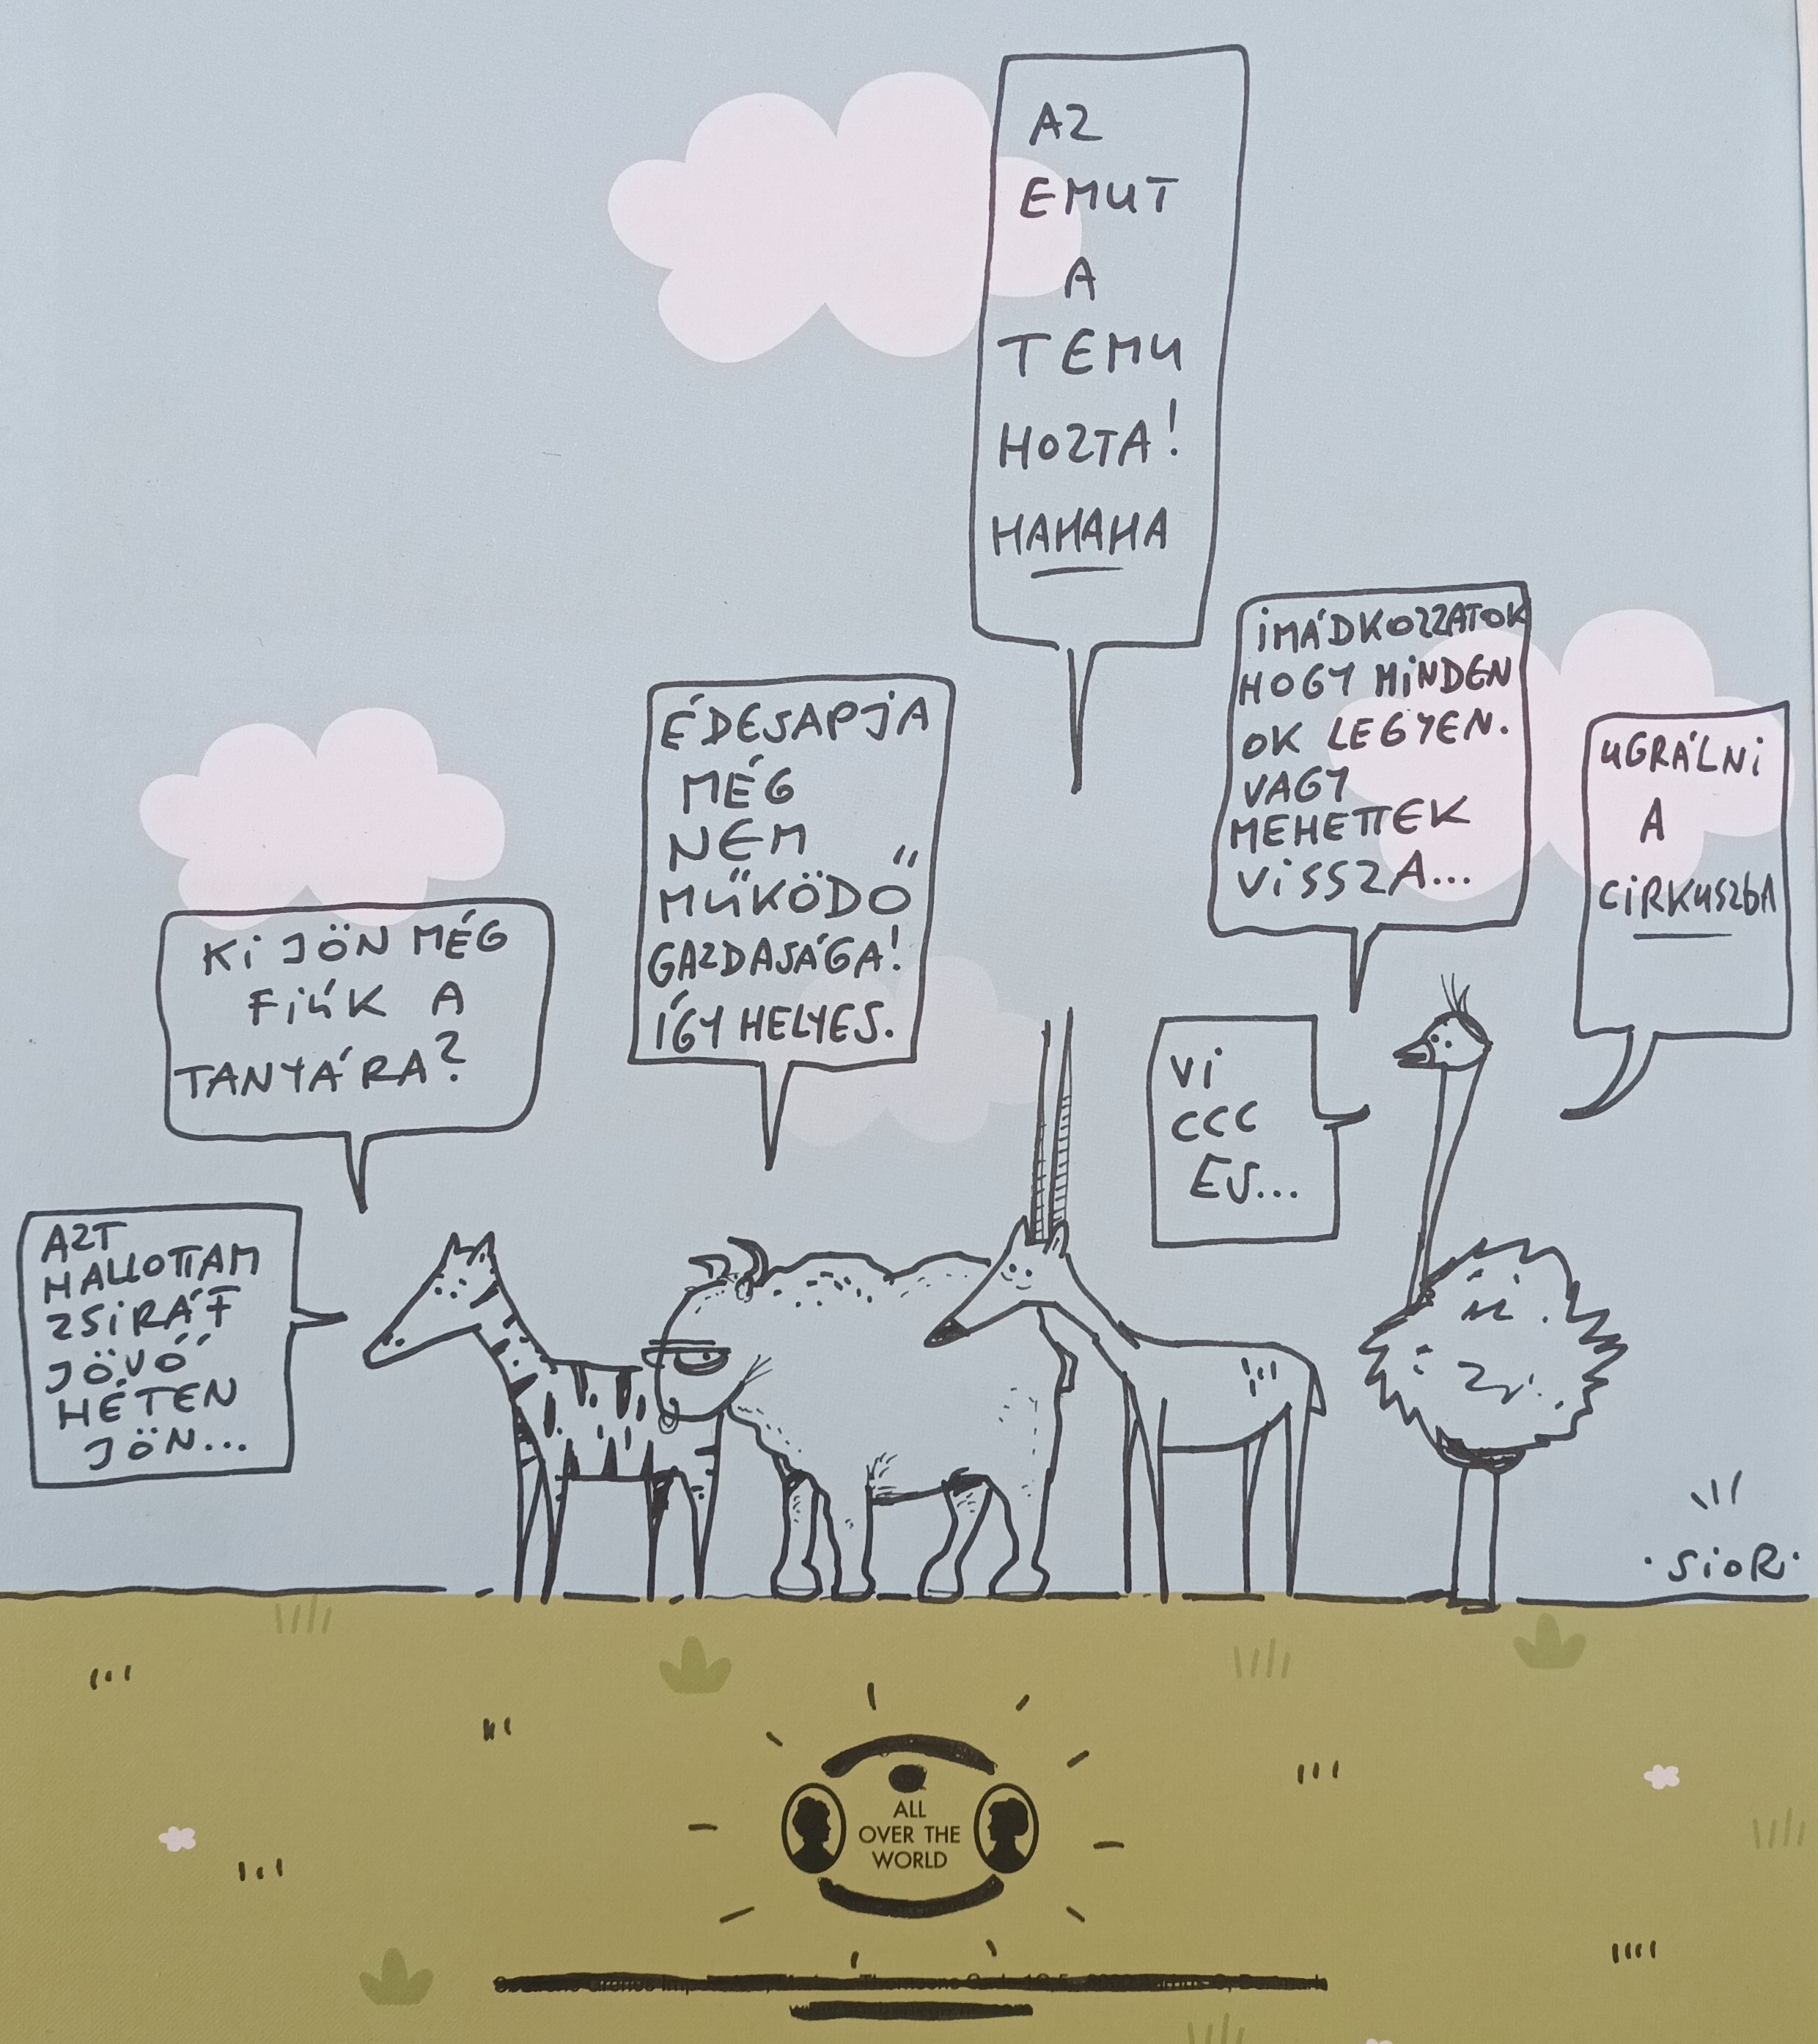 KI JÖN MÉG
FIÚK A
TANYÁRA?
AZT
HALLOTTAM
ZSIRÁF
JÖVŐ
HÉTEN
JÖN...
ÉDESAPJA
MÉG
NEM
MŰKÖDŐ
GAZDASÁGA!
ÍGY HELYES.
AZ
EMUT
A
TEMU
HOZTA!
HAHAHA
VI
CCC
ES...
IMÁDKOZZATOK
HOGY MINDEN
OK LEGYEN.
VAGY
MEHETTEK
VISSZA...
UGRÁLNI
A
CIRKUSZBA
SIOR
ALL
OVER THE
WORLD